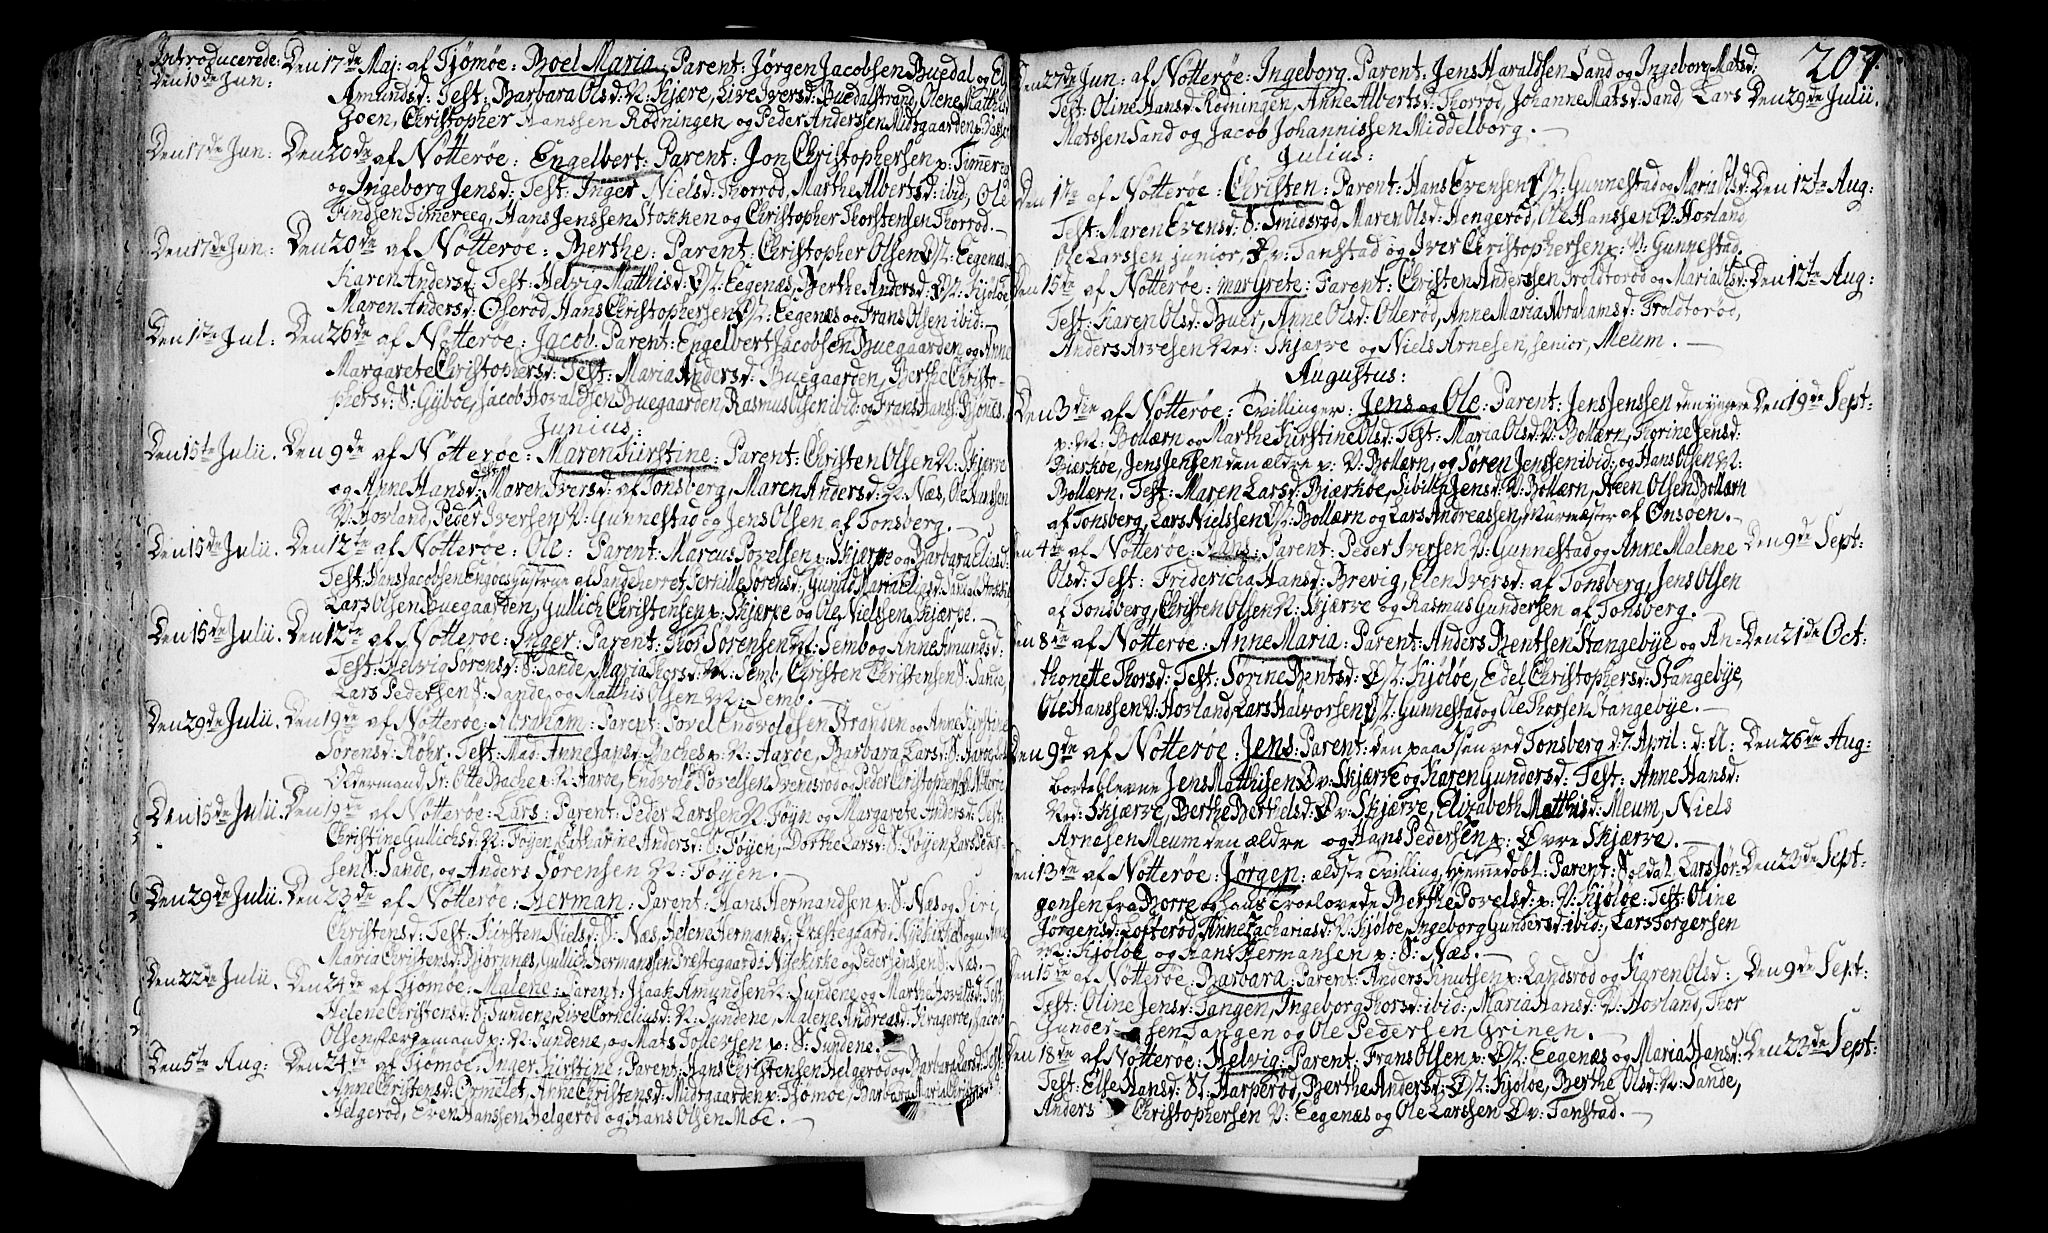 Introducerede: Den 17de Maj: af Tjømøe: Boel Maria: Parent: Jørgen Jacobsen Buedal og
Den 10de Jun: Amundsd: Test: Barbara Olsd: N: Kjære, Live Iversd: Buedalstrand, Olene
Goen, Christopher Hanssen Rødningen og Peder Anderssen Midtgaarden
Den 17de Jun: Den 20de af Nøtterøe: Engelbert: Parent: Jon Christophersen p: Timere
og Ingeborg Jensd: Test: Inger Nielsd: Thorrød, Marthe Albertsd: ibid, Ole
Findsen Timereeg, Hans Jenssen Stokken og Christopher Thorstensen Thorrød.
Den 17de Jun: Den 20de af Nøtterøe: Berthe: Parent: Christopher Olsen Eegenes
Karen Andersd: Test: Helvig Mathisd: Eegenæs, Berthe Andersd: Kjøløe,
Maren Andersd: Oserød, Hans Christophersen Eegenæs og Frans Olsen ibid:
Den 1te Jul: Den 26de af Nøtterøe: Jacob: Parent: Engelbert Jacobsen Buegaarden og Anne
Margarete Christophersd: Test: Maria Andersd: Buegaarden, Berthe Christo-
phersd: S: Gyboe, Jacob Hovaldsen Buegaarden, Rasmus Olsen ibid: og Frans Hanss:
Junius:
Den 15te Julii. Den 9de af Nøtterøe: Maren Kirstine: Parent: Christen Olsen N: Skjerve
og Anne Hansd: Test: Maren Iversd: af Tonsberg, Maren Andersd: N: Næs, Ole Hanssen
N: Hovland, Peder Iversen N: Gunnestad og Jens Olsen af Tonsberg.
Den 15de Julii. Den 12te af Nøtterøe: Ole: Parent: Marcus Povelsen p: Skjærve og Barbara Eliasd:
Test: Hans Jacobsen Engøes Hustrue af Sandeherret, Pernille Sørensd:, Gunild Maria
Lars Olsen Buegaarden, Gullich Christensen p: Skjærve og Ole Nielssen Skjærve.
Den 15de Julii. Den 12te af Nøtterøe: Inger: Parent: Thor Sørensen N: Semb og Anne Amundsd:
Test: Helvig Sørensd: S: Sande, Maria Thorsd: N: Semb, Christen Christensen S: Sande,
Lars Pedersen S: Sande, og Matthis Olsen N: Semb.
Den 29de Julii. Den 19de af Nøtterøe: Abraham: Parent: Povel Endvoldsen Strausen og Anne Kirstine
Sørensd: Røhr, Test: Mad: Anne Jansd: Baches p: N: Aarøe, Barbara Larsd:
Oldermand Sr: Otte Bache p: N: Aarøe, Endvold Povelsen Svendsrød og Peder Christophersen
Den 15de Julii. Den 19de af Nøtterøe: Lars: Parent: Peder Larssen N: Føyn og Margarete Andersd: Test:
Christine Gullichsd: N: Føyen, Catharine Andersd: S: Føyen, Dorthe Larsd: S: Føyen, Lars Peder-
sen S: Sande, og Anders Sørensen N: Føyen.
Den 29de Julii. Den 23de af Nøtterøe: Herman: Parent: Hans Hermandsen p: S: Næs og Siri
Christensd: Test: Kirsten Nielsd: S: Næs, Helene Hermansd: Prestegaard i Nykirke Sogn, Anne
Maria Christensd: Bjørnnæs, Gullich Hermanssen Præstegaard i Nykirke og Peder Jenssen S: Næs.
Den 22de Julii. Den 24de af Tjømøe: Malene: Parent: Isaak Amundsen N: Sundene og Marthe Hovaldsd: Test:
Helene Christensd: S: Sundene, Live Corneliusd: N: Sundene, Malene Andreasd: Kragerøe, Jacob
Olsen Færgemand p: N: Sundene, og Mats Tollevsen p: S: Sundene.
Den 5te Aug: Den 24de af Tjømøe: Inger Kirstine: Parent: Hans Christensen Helgerød og Barbara Larsd: Test:
Anne Christensd: Ormelet, Anne Christensd: Midtgaarden p: Tjømøe, Barbara Maria
Helgerød, Even Hanssen Helgerød og Hans Olsen Moe.
207.
Den 27de Jun: af Nøtterøe: Ingeborg: Parent: Jens Haraldsen Sand og Ingeborg Matsd:
Test: Oline Hansd: Rødningen, Anne Albertsd: Thorrød, Johanne Matsd: Sand, Lars Den 29de Julii.
Matssen Sand og Jacob Johannissen Middelborg.
Julius:
Den 1te af Nøtterøe: Christen: Parent: Hans Evensen Gunnestad og Maria Olsd: Den 12te Aug:
Test: Maren Evensd: S: Smidsrød, Maren Olsd: Hengerød, Ole Hanssen N: Hovland,
Ole Larssen junior, Øv: Tanstad og Iver Christophersen p: N: Gunnestad.
Den 15te af Nøtterøe: Margrete: Parent: Christen Anderssen Troldtorød og Maria Olsd: Den 12te Aug:
Test: Karen Olsd: Buer, Anne Olsd: Ollerød, Anne Maria Abrahamsd: Troldtorød,
Anders Arvesen Ned: Skjærve og Niels Arnesen, senior, Meum.
Augustus:
Den 3die af Nøtterøe: Tvillinger: Jens og Ole: Parent: Jens Jenssen den yngre Den 19de Sept:
p: N: Bollærn og Marthe Kirstine Olsd: Test: Maria Olsd: N: Bollærn, Thorine Jensd:
Bjerkøe, Jens Jensen den ældre p: N: Bollærn, og Søren Jenssen ibid: og Hans Olsen N:
Bollærn. Test: Maren Larsd: Bjerkøe, Sibilla Jensd: N: Bollærn, Steen Olsen Bollærn
af Tonsberg, Lars Nielssen Bollærn og Lars Andreassen, Murmæster af Onsøen.
Den 4te af Nøtterøe: Hans: Parent: Peder Iversen N: Gunnestad og Anne Malene Den 9de Sept:
Olsd: Test: Fridericha Hansd: Brevig, Elen Iversd: af Tonsberg, Jens Olsen
af Tonsberg, Christen Olsen N: Skjærve og Rasmus Gundersen af Tonsberg.
Den 8de af Nøtterøe: Anne Maria: Parent: Anders Bentsen Stangebye og An- Den 21de Oct:
thonette Thorsd: Test: Sørine Bentsd: Kjøløe, Edel Christophersd: Stangebye,
Ole Hanssen N: Hovland, Lars Halvorsen Gunnestad og Ole Thorsen Stangebye.
Den 9de af Nøtterøe: Jens: Parent: den paa Søen ved Tonsberg d: 7 April: d: A: Den 26de Aug:
borteblevne Jens Matthisen Øv: Skjærve og Karen Gundersd: Test: Anne Hansd:
Ned: Skjærve, Berthe Berthelsd: Øv: Skjærve, Elizabeth Mathisd: Meum, Niels
Arnesen Meum den ældre og Hans Pedersen p: Øvre Skjærve.
Den 13de af Nøtterøe: Jørgen: ældste Tvilling, Hjemmedøbt: Parent: Soldat Lars Jør- Den 23de Sept:
gensen fra Borre og hans Troelovede Berthe Povelsd: p: N: Kjøløe: Test: Oline
Jørgensd: Lofterød, Anne Zachariasd: N: Kjøløe, Ingeborg Gundersd: ibid:, Lars Torgersen
N: Kjøløe og Hans Hermansen p: S: Næs.
Den 15de af Nøtterøe: Barbara: Parent: Anders Knutsen p: Landsrød og Karen Olsd: Den 9de Sept:
Test: Oline Jensd: Tangen, Ingeborg Thorsd: ibid:, Maria Hansd: N: Hovland, Thor
Gundersen Tangen og Ole Pedersen Grinen.
Den 18de af Nøtterøe: Helvig: Parent: Frans Olsen p: Eegenæs og Maria Hansd: Den 23de Sept:
Test: Else Hansd: N: Harperød, Berthe Andersd: Kjøløe, Berthe Olsd: N: Sande,
Anders Christophersen N: Eegenæs og Ole Larssen Øv: Tanstad.